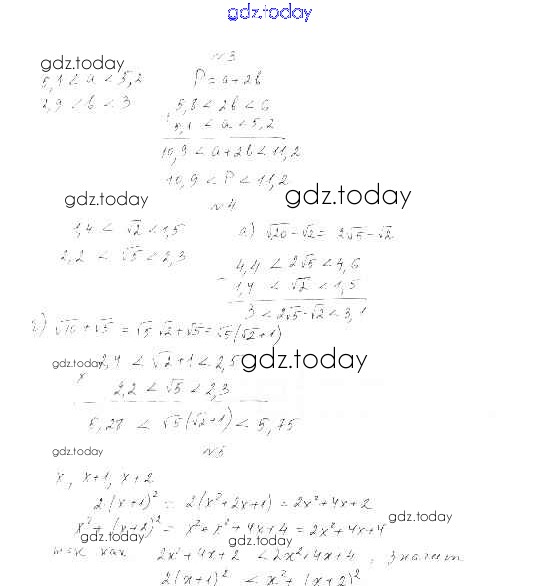 gdz.today
№3
gdz.today
5,1 < a < 5,2
P = a + 2b
2,9 < b < 3
5,8 < 2b < 6
+ 5,1 < a < 5,2
10,9 < a + 2b < 11,2
10,9 < P < 11,2
gdz.today
gdz.today
№4
1,4 < √2 < 1,5
а) √20 - √2 = 2√5 - √2
2,2 < √5 < 2,3
4,4 < 2√5 < 4,6
- 1,4 < √2 < 1,5
3 < 2√5 - √2 < 3,1
√10 + √5 = √5 √2 + √5 = √5(√2+1)
gdz.today
2,4 < √2+1 < 2,5
gdz.today
x 2,2 < √5 < 2,3
5,28 < √5(√2+1) < 5,75
gdz.today
№5
x, x+1, x+2
2(x+1)² = 2(x²+2x+1) = 2x²+4x+2
gdz.today
x² + (x+2)² = x²+x²+4x+4 = 2x²+4x+4
gdz.today
gdz.today
так как 2x²+4x+2 < 2x²+4x+4, значит
2(x+1)² < x² + (x+2)²